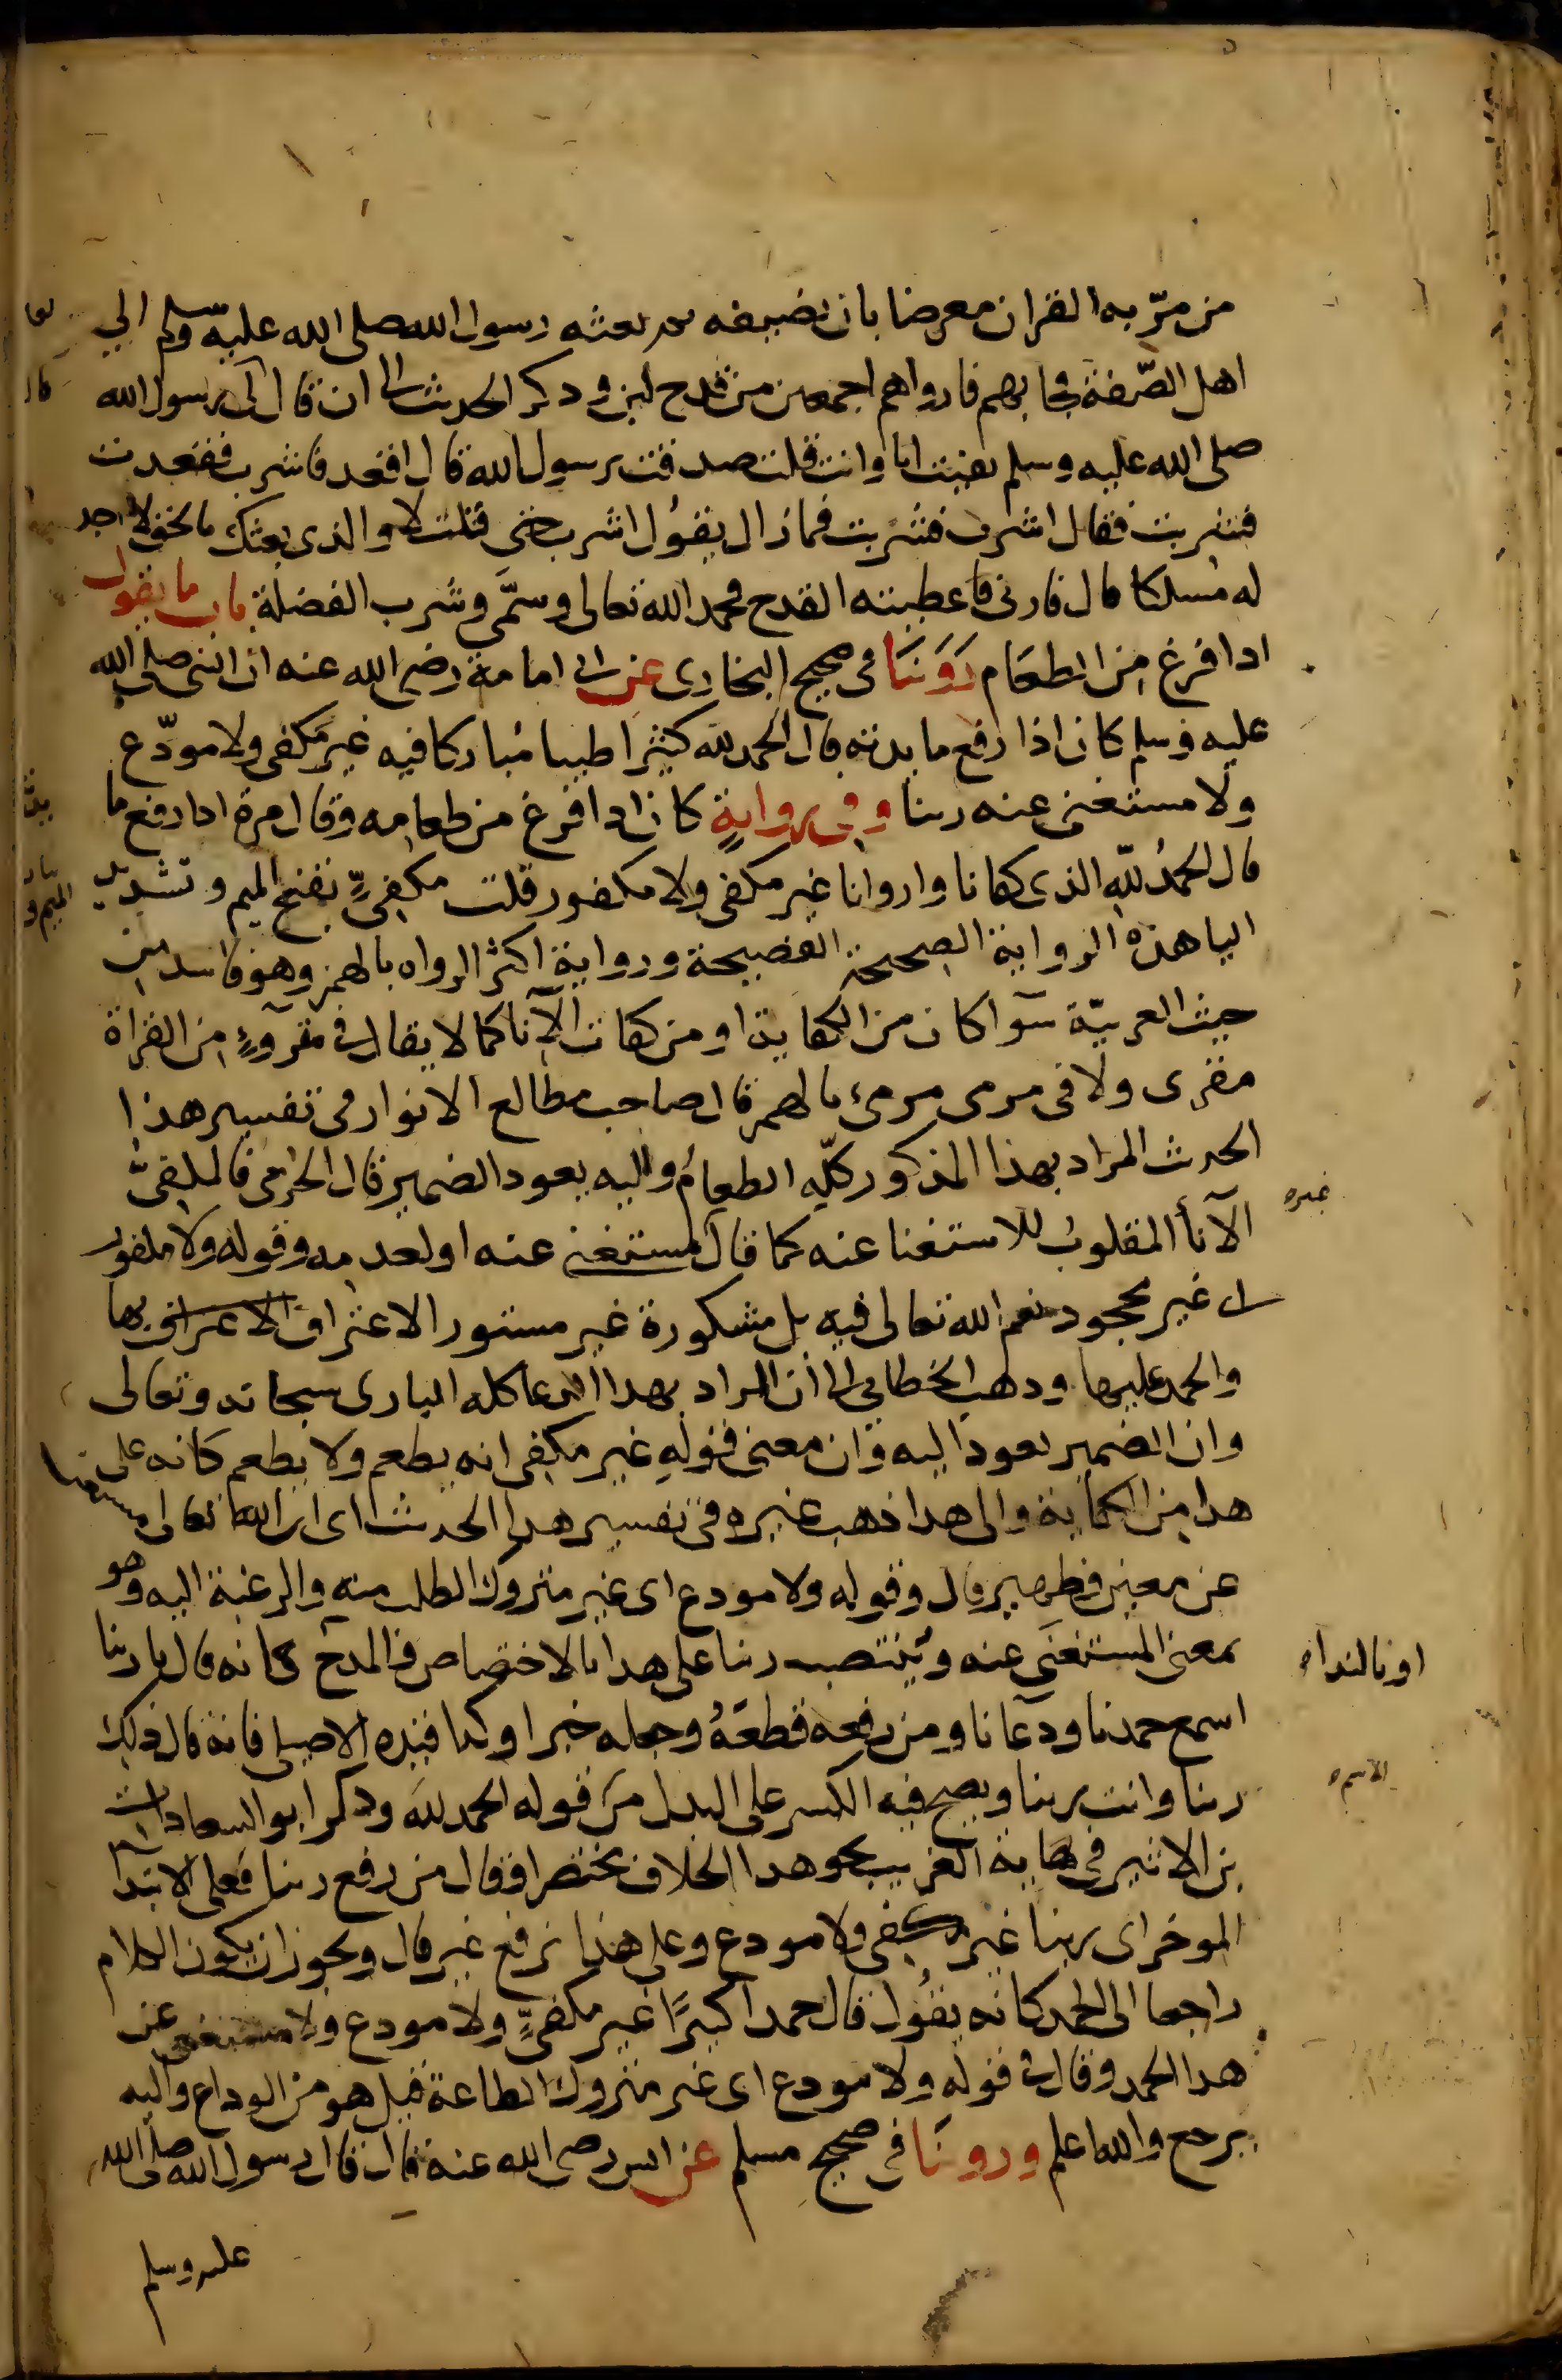 من مرّ به القران معرضا بان يضيفه ثم بعثه رسول الله صلى الله عليه وسلم الي
اهل الصّفة فجا بهم فارواهم اجمعين من قدح لبن وذكر الحديث الى ان قال لي رسول الله
صلى الله عليه وسلم بقيت انا وانت قلت صدقت يرسول الله قال اقعد فاشرب فقعدت
فشربت فقال اشرب فشربت فمازال يقول اشرب حتي قلت لا والذى بعثك بالحق لا اجد
له مسلكا قال فارني فاعطيته القدح فحمد الله تعالى وسمّى وشرب الفضلة باب ما يقول
اذا فرغ من الطعام روينا في صحيح البخارى عن ابي امامة رضي الله عنه ان النبي صلى الله
عليه وسلم كان اذا رفع مايدته قال الحمد لله كثيرا طيبا مباركا فيه غير مكفى ولا مودّع
ولا مستغنى عنه ربنا وفي رواية كان اذا فرغ من طعامه وقال مرة اذا رفع ما
قال الحمد لله الذى كفانا واروانا غير مكفى ولا مكفور قلت مكفيٍّ بفتح الميم وتشديد
اليا هذه الرواية الصحيحة الفصيحة ورواية اكثر الرواه بالهمز وهو فاسد من
حيث العربيّة سوآ كان من الكفاية او من كفات الآنا كما لا يقال في مقروءٍ من القراة
مقرى ولا في مرمى مرمئ بالهمز قال صاحب مطالع الانوار في تفسير هذا
الحديث المراد بهذا المذكور كلّه الطعام واليه يعود الضمير قال الحربي فالمكفئ
الآنا المقلوب للاستغنا عنه كما قال مستغنى عنه او لعدمه وقوله ولا مكفور
اى غير مجحود نعم الله تعالى فيه بل مشكورة غير مستور الاعتراف الاعتراف بها
والحمد عليها وذهب الخطابي الى ان المراد بهذا الدعا كله البارى سبحانه وتعالى
وان الضمير يعود اليه وان معنى قوله غير مكفى انه يطعم ولا يطعم كانه على
هذا من الكفاية والى هذا ذهب غيره في تفسير هذا الحديث اى ان الله تعالى مستغن
عن معين وظهير قال وقوله ولا مودع اى غير متروك الطلب منه والرغبة اليه وهو
بمعنى المستغنى عنه وينتصب ربنا على هذا بالاختصاص والمدح كانه قال يا ربنا
او بالنداه
اسمع حمدنا ودعآنا ومن رفعه قطعهُ وجعله خبرا وكذا قيده الاصيلى فانه قال ذلك
ربنا وانت ربنا ويصح فيه الكسر على البدل من قوله الحمد لله وذكر ابو السعادات
بن الاثير في نهاية الغريب نحو هذا الخلاف مختصرا فقال من رفع ربنا فعلى الابتدا
الموخر اى ربنا غير مكفى ولا مودع وعلى هذا يرفع غير قال ويجوز ان يكون الكلام
راجعا الى الحمد كانه يقول قال حمدا كثيرًا غير مكفيٍّ ولا مودع ولا مستغنى عن
هذا الحمد وقال في قوله ولا مودع اى غير متروك الطاعة قيل هو من الوداع واليه
يرجع والله اعلم وروينا في صحيح مسلم عن انس رضي الله عنه قال قال رسول الله صلى الله
عليه وسلم